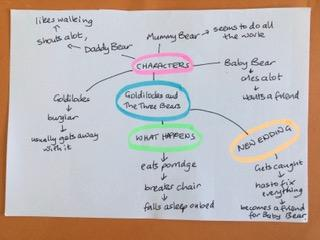 likes walking
shouts alot,
Daddy Bear
Mummy Bear → seems to do all
the work
CHARACTERS
Baby Bear
cries alot
wants a friend
Goldilocks
burglar
usually gets away
with it
Goldilocks and
The Three Bears
WHAT HAPPENS
eats porridge
breaks chair
falls asleep on bed
NEW ENDING
Gets caught
has to fix
everything
becomes a friend
for Baby Bear